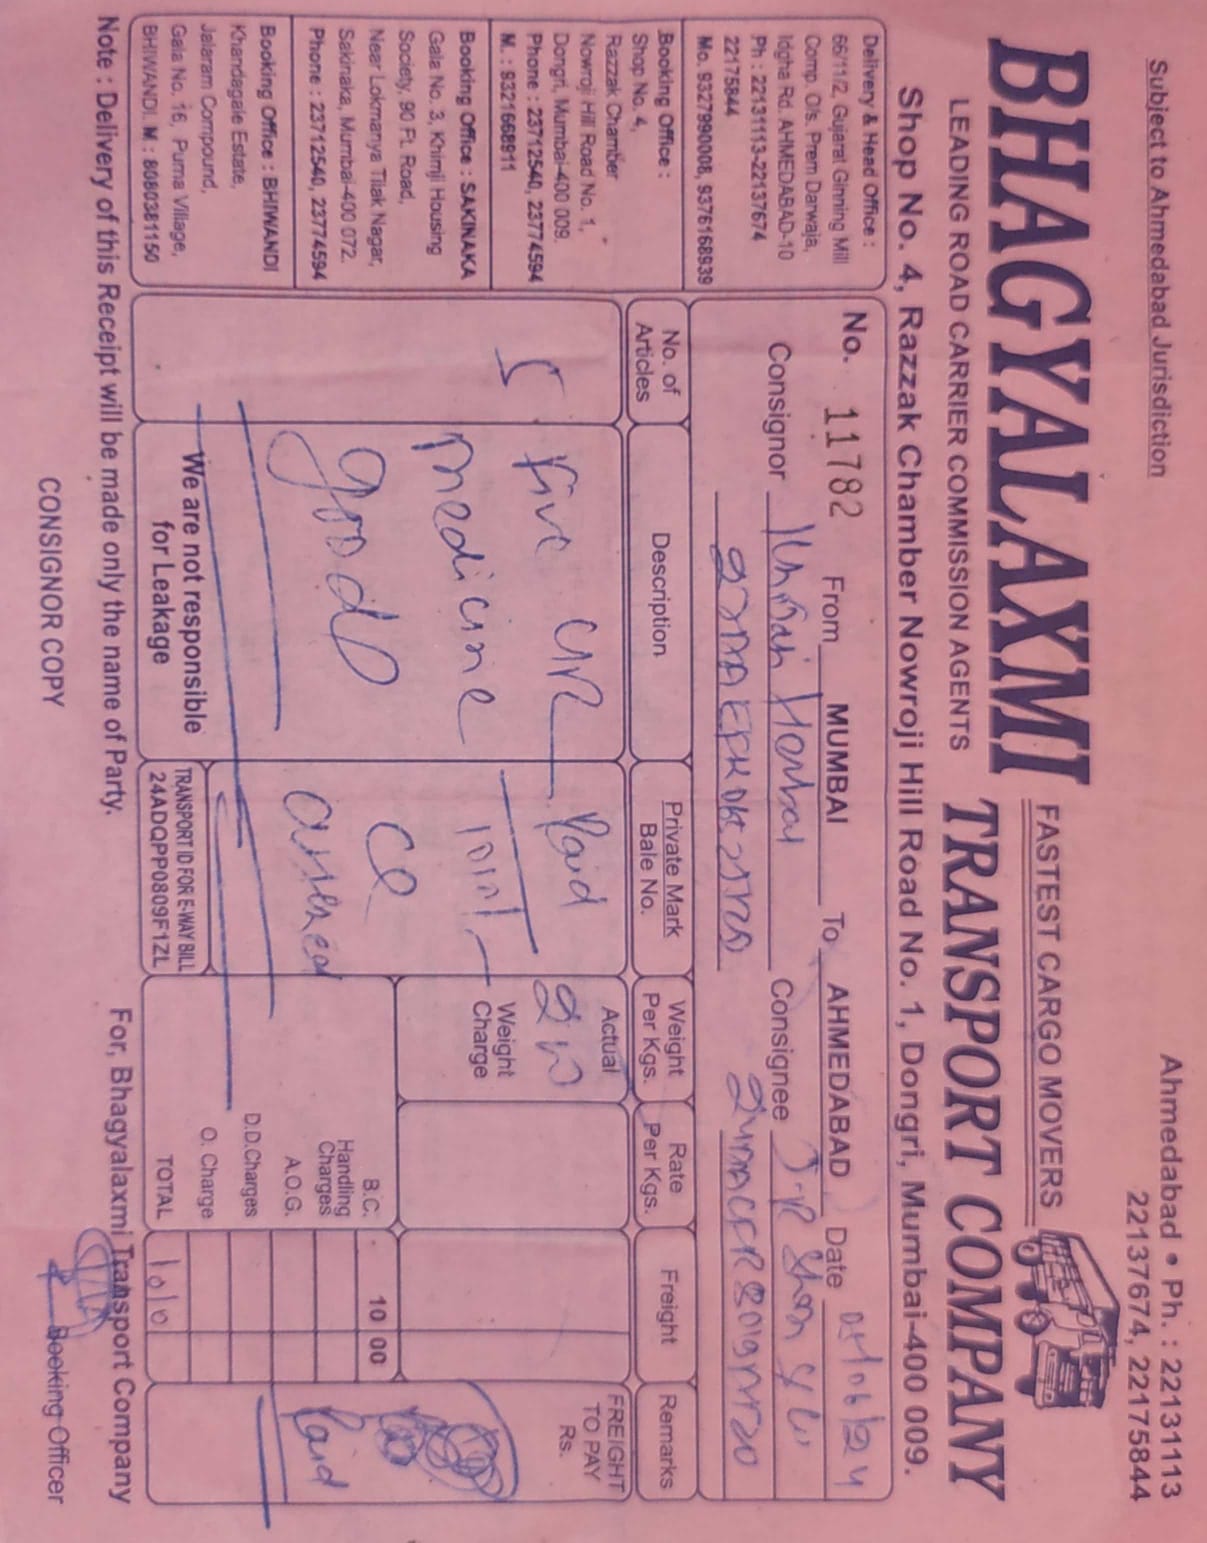 Subject to Ahmedabad Jurisdiction
Ahmedabad • Ph. : 22131113
22137674, 22175844
BHAGYALAXMI
FASTEST CARGO MOVERS
TRANSPORT COMPANY
LEADING ROAD CARRIER COMMISSION AGENTS
Shop No. 4, Razzak Chamber Nowroji Hill Road No. 1, Dongri, Mumbai-400 009.
Delivery & Head Office :
66/11/2, Gujarat Ginning Mill
Comp. O/s. Prem Darwaja,
Idgha Rd. AHMEDABAD-10
Ph : 22131113-22137674
22175844
Mo. 9327990008, 9376168939
Booking Office :
Shop No. 4,
Razzak Chamber
Nowroji Hill Road No. 1,
Dongri, Mumbai-400 009.
Phone : 23712540, 23774594
M. : 9321668911
Booking Office : SAKINAKA
Gala No. 3, Khimji Housing
Society, 90 Ft. Road,
Near Lokmanya Tilak Nagar,
Sakinaka, Mumbai-400 072.
Phone : 23712540, 23774594
Booking Office : BHIWANDI
Khandagale Estate,
Jalaram Compound,
Gala No. 16, Purna Village,
BHIWANDI. M : 8080381150
No. 11782 From MUMBAI To AHMEDABAD Date
Consignor Herbal Consignee
No. of Articles
Description
Private Mark Bale No.
Weight Per Kgs.
Rate Per Kgs.
Freight
Remarks
5
Five
medicine
good
Paid
Actual
Weight Charge
FREIGHT TO PAY Rs.
B.C. 10 00
Handling Charges
A.O.G.
D.D.Charges
O. Charge
TOTAL
Paid
We are not responsible
for Leakage
TRANSPORT ID FOR E-WAY BILL
24ADQPP0809F1ZL
Note : Delivery of this Receipt will be made only the name of Party.
For, Bhagyalaxmi Transport Company
CONSIGNOR COPY
Booking Officer